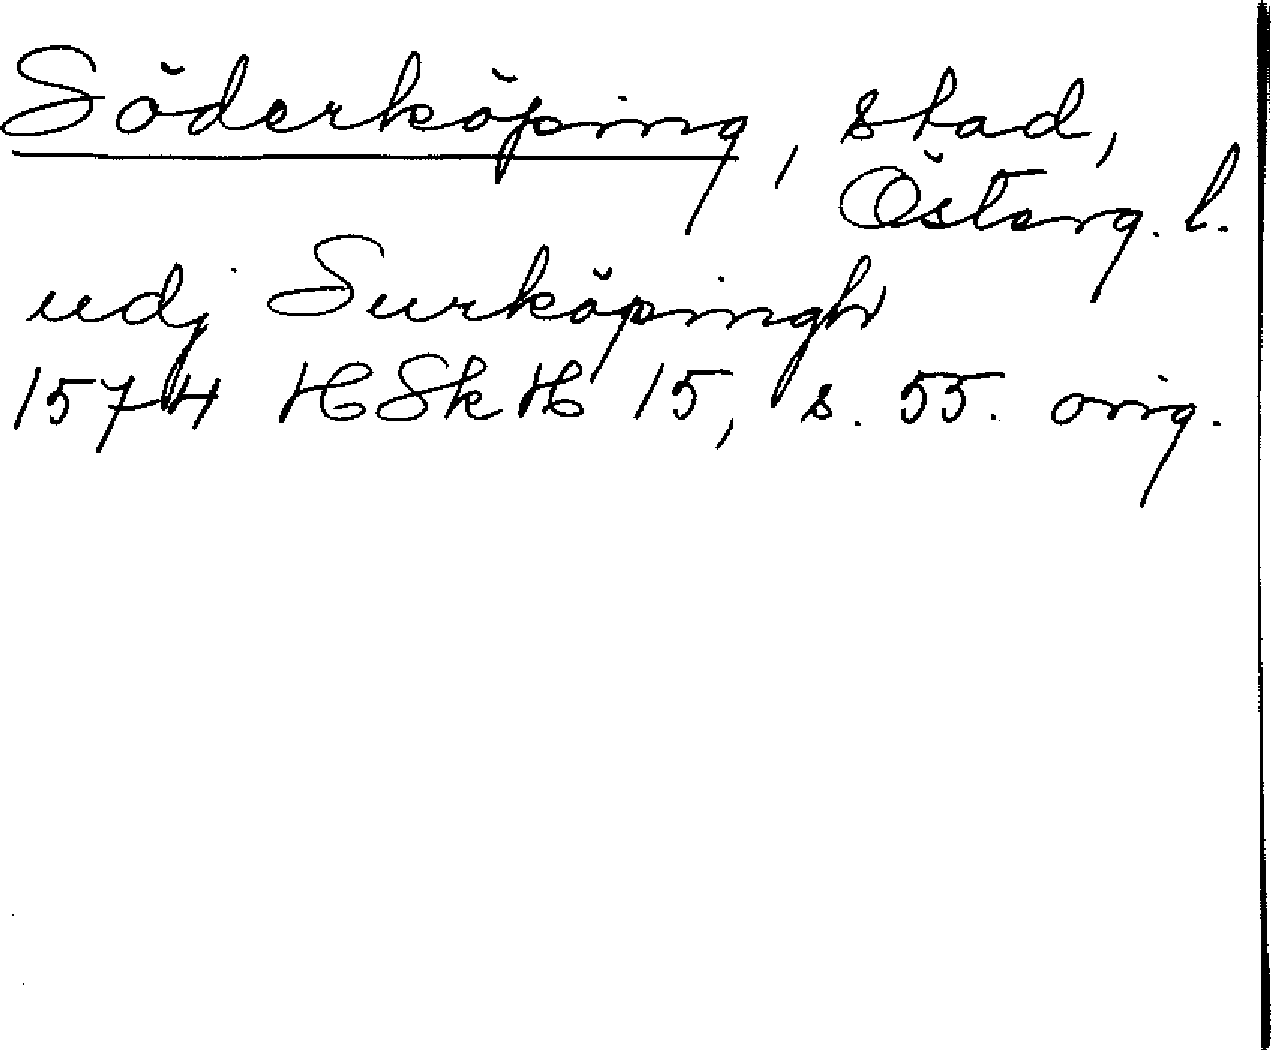 Söderköping, stad,
Österg. l.
udj Surköpingh
1574 HSkH 15, s. 55. orig.